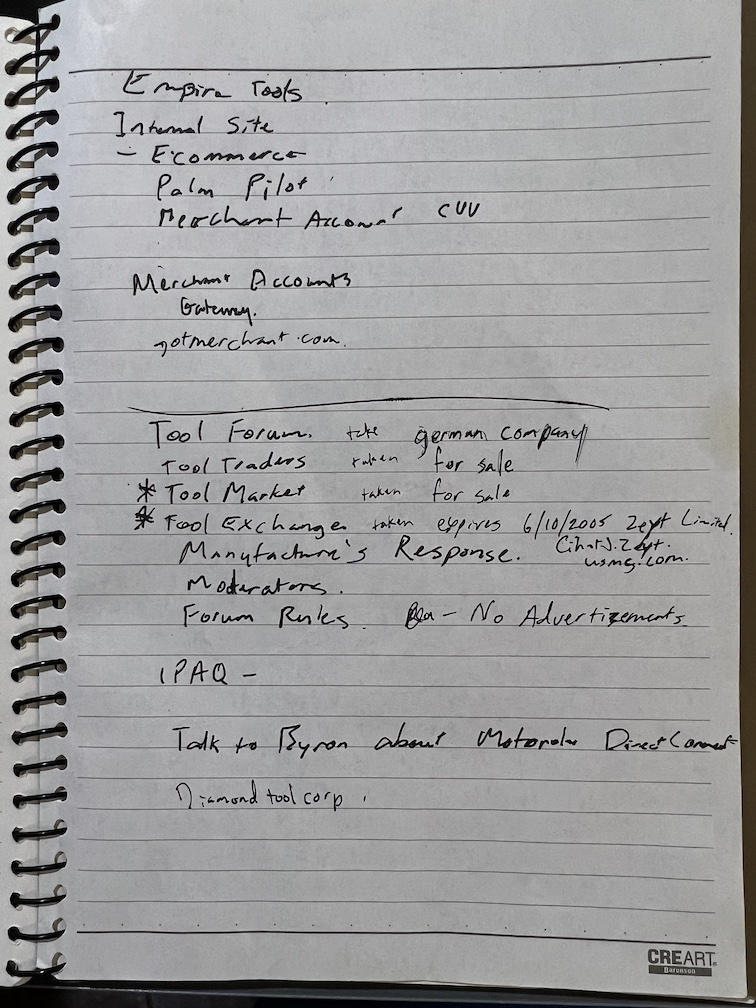 Empire Tools
Internal Site
- Ecommerce
Palm Pilot
Merchant Account CVV
Merchant Accounts
Gateway.
gotmerchant.com.
Tool Forum. take german company
Tool Traders taken for sale
* Tool Market taken for sale
* Tool Exchange taken expires 6/10/2005 Zept Limited.
Manufacture's Response.
usmg.com.
Moderators.
Forum Rules. - No Advertizements.
iPAQ -
Talk to Byron about Motorola Direct Connect
Diamond tool corp.
CREART
Barunson